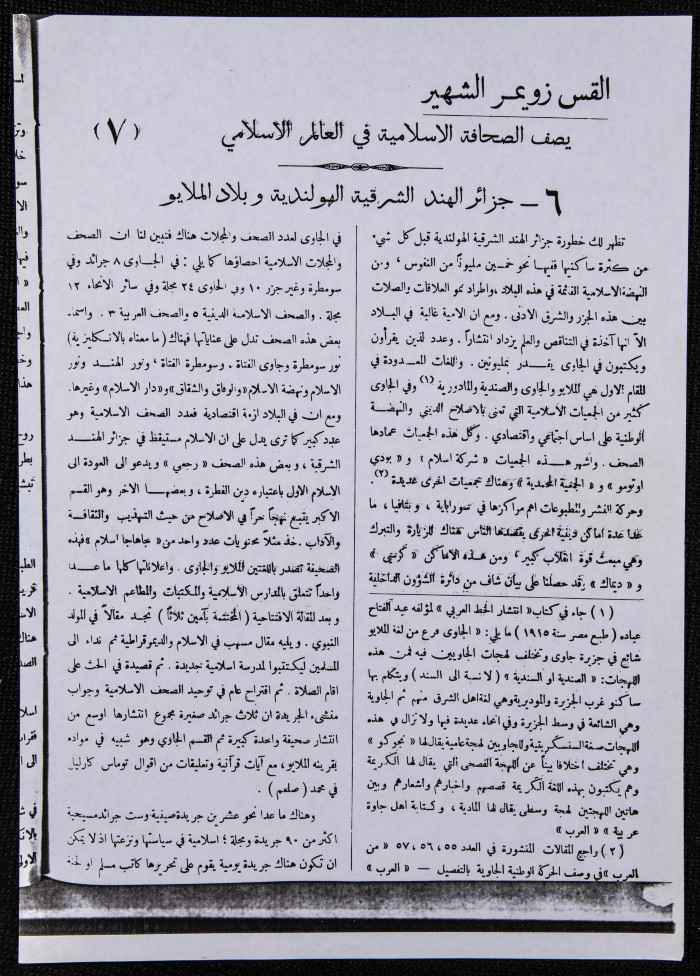 القس زويمر الشهير
يصف الصحافة الاسلامية في العالم الاسلامي
(٧)
٦ - جزائر الهند الشرقية الهولندية وبلاد الملايو
تظهر لك خطورة جزائر الهند الشرقية الهولندية قبل كل شيء
من كثرة ساكنيها ففيها نحو خمسين مليوناً من النفوس ، ومن
النهضة الاسلامية القائمة في هذه البلاد ، واطراد نمو العلاقات والصلات
بين هذه الجزر والشرق الادنى . ومع ان الامية غالبة في البلاد
الا انها آخذة في التناقص والعلم يزداد انتشاراً . وعدد الذين يقرأون
ويكتبون في الجاوى يقدر بمليونين . واللغات المعدودة في
المقام الاول هي الملايو والجاوى والصندية والمادورية (١) وفي الجاوى
كثير من الجمعيات الاسلامية التي تعنى بالاصلاح الديني والنهضة
الوطنية على اساس اجتماعي واقتصادي . وكل هذه الجمعيات عمادها
الصحف . واشهر هذه الجمعيات « شركة اسلام » و « بودي
اوتومو » و « الجمعية المحمدية » وهناك جمعيات اخرى عديدة (٢).
وحركة النشر والمطبوعات اهم مراكزها في سورابايا ، وبتافيا ، ما
عدا عدة اماكن دينية اخرى يقصدها الناس هناك للزيارة والتبرك
وهي مبعث قوة انقلاب كبير ، ومن هذه الاماكن « كرسي »
و « ديماك » وقد حصلنا على بيان شاف من دائرة الشؤون الداخلية
(١) جاء في كتاب « انتشار الخط العربي » لمؤلفه عبد الفتاح
عباده (طبع مصر سنة ١٩١٥) ما يلي: « الجاوى فرع من لغة الملايو
شائع في جزيرة جاوى وتختلف لهجات الجاويين فيه فمن هذه
اللهجات: « الصندية او السندية » (لا نسبة الى السند) ويتكلم بها
ساكنو غرب الجزيرة والموديرية وهي لغة اهل الشرق منهم ثم الجاوية
وهي الشائعة في وسط الجزيرة وفي انحاء عديدة فيها ولا تزال في هذه
اللهجات صفة السنسكريتية وللجاويين لهجة عامية يقال لها « نجوكو »
وهي تختلف اختلافا بيناً عن اللهجة الفصحى التي يقال لها الكريمة
وهم يكتبون بهذه اللغة الكريمة قصصهم واخبارهم واشعارهم وبين
هاتين اللهجتين لهجة وسطى يقال لها المادية ، وكتابة اهل جاوة
عربية » « العرب »
(٢) راجع المقالات المنشورة في العدد ٥٥ ، ٥٦ ، ٥٧ « من
العرب » في وصف الحركة الوطنية الجاوية بالتفصيل — « العرب »
في الجاوى لعدد الصحف والمجلات هناك فتبين لنا ان الصحف
والمجلات الاسلامية احصاؤها كما يلي : في الجاوى ٨ جرائد وفي
سومطرة وغير جزر ١٠ وفي الجاوى ٢٤ مجلة وفي سائر الانحاء ١٢
مجلة . والصحف الاسلامية الدينية ٥ والصحف العربية ٣ . واسماء
بعض هذه الصحف تدل على عناياتها فهناك (ما معناه بالانكليزية)
نور سومطرة وجاوى الفتاة ، وسومطرة الفتاة ، ونور الهند ونور
الاسلام ونهضة الاسلام «والوفاق والشقاق» و«دار الاسلام» وغيرها.
ومع ان في البلاد ازمة اقتصادية فعدد الصحف الاسلامية وهو
عدد كبير كما ترى يدل على ان الاسلام مستيقظ في جزائر الهند
الشرقية ، وبعض هذه الصحف « رجعي » ويدعو الى العودة الى
الاسلام الاول باعتباره دين الفطرة ، وبعضها الآخر وهو القسم
الاكبر يتبع نهجاً حراً في الاصلاح من حيث التهذيب والثقافة
والآداب . خذ مثلا محتويات عدد واحد من « جاهاجا اسلام » فهذه
الصحيفة تصدر باللغتين الملايو والجاوى . واعلاناتها كلها ما عدا
واحداً تتعلق بالمدارس الاسلامية والمكتبات والمطاعم الاسلامية .
وبعد المقالة الافتتاحية (المختتمة بآمين ثلاثاً) تجد مقالاً في المولد
النبوي . ويليه مقال مسهب في الاسلام والديموقراطية ثم نداء الى
المسلمين ليكتتبوا لمدرسة اسلامية جديدة . ثم قصيدة في الحث على
اقام الصلاة . ثم اقتراح عام في توحيد الصحف الاسلامية وجواب
منشيء الجريدة ان ثلاث جرائد صغيرة مجموع انتشارها اوسع من
انتشار صحيفة واحدة كبيرة ثم القسم الجاوي وهو شبيه في مواده
بقرينه الملايو ، مع آيات قرآنية وتعليقات من اقوال توماس كارليل
في محمد (صلعم) .
وهناك ما عدا نحو عشرين جريدة صينية وست جرائد مسيحية
اكثر من ٩٠ جريدة ومجلة ؛ اسلامية في سياستها ونزعتها اذ لا يمكن
ان تكون هناك جريدة يومية يقوم على تحريرها كاتب مسلم او لجنة